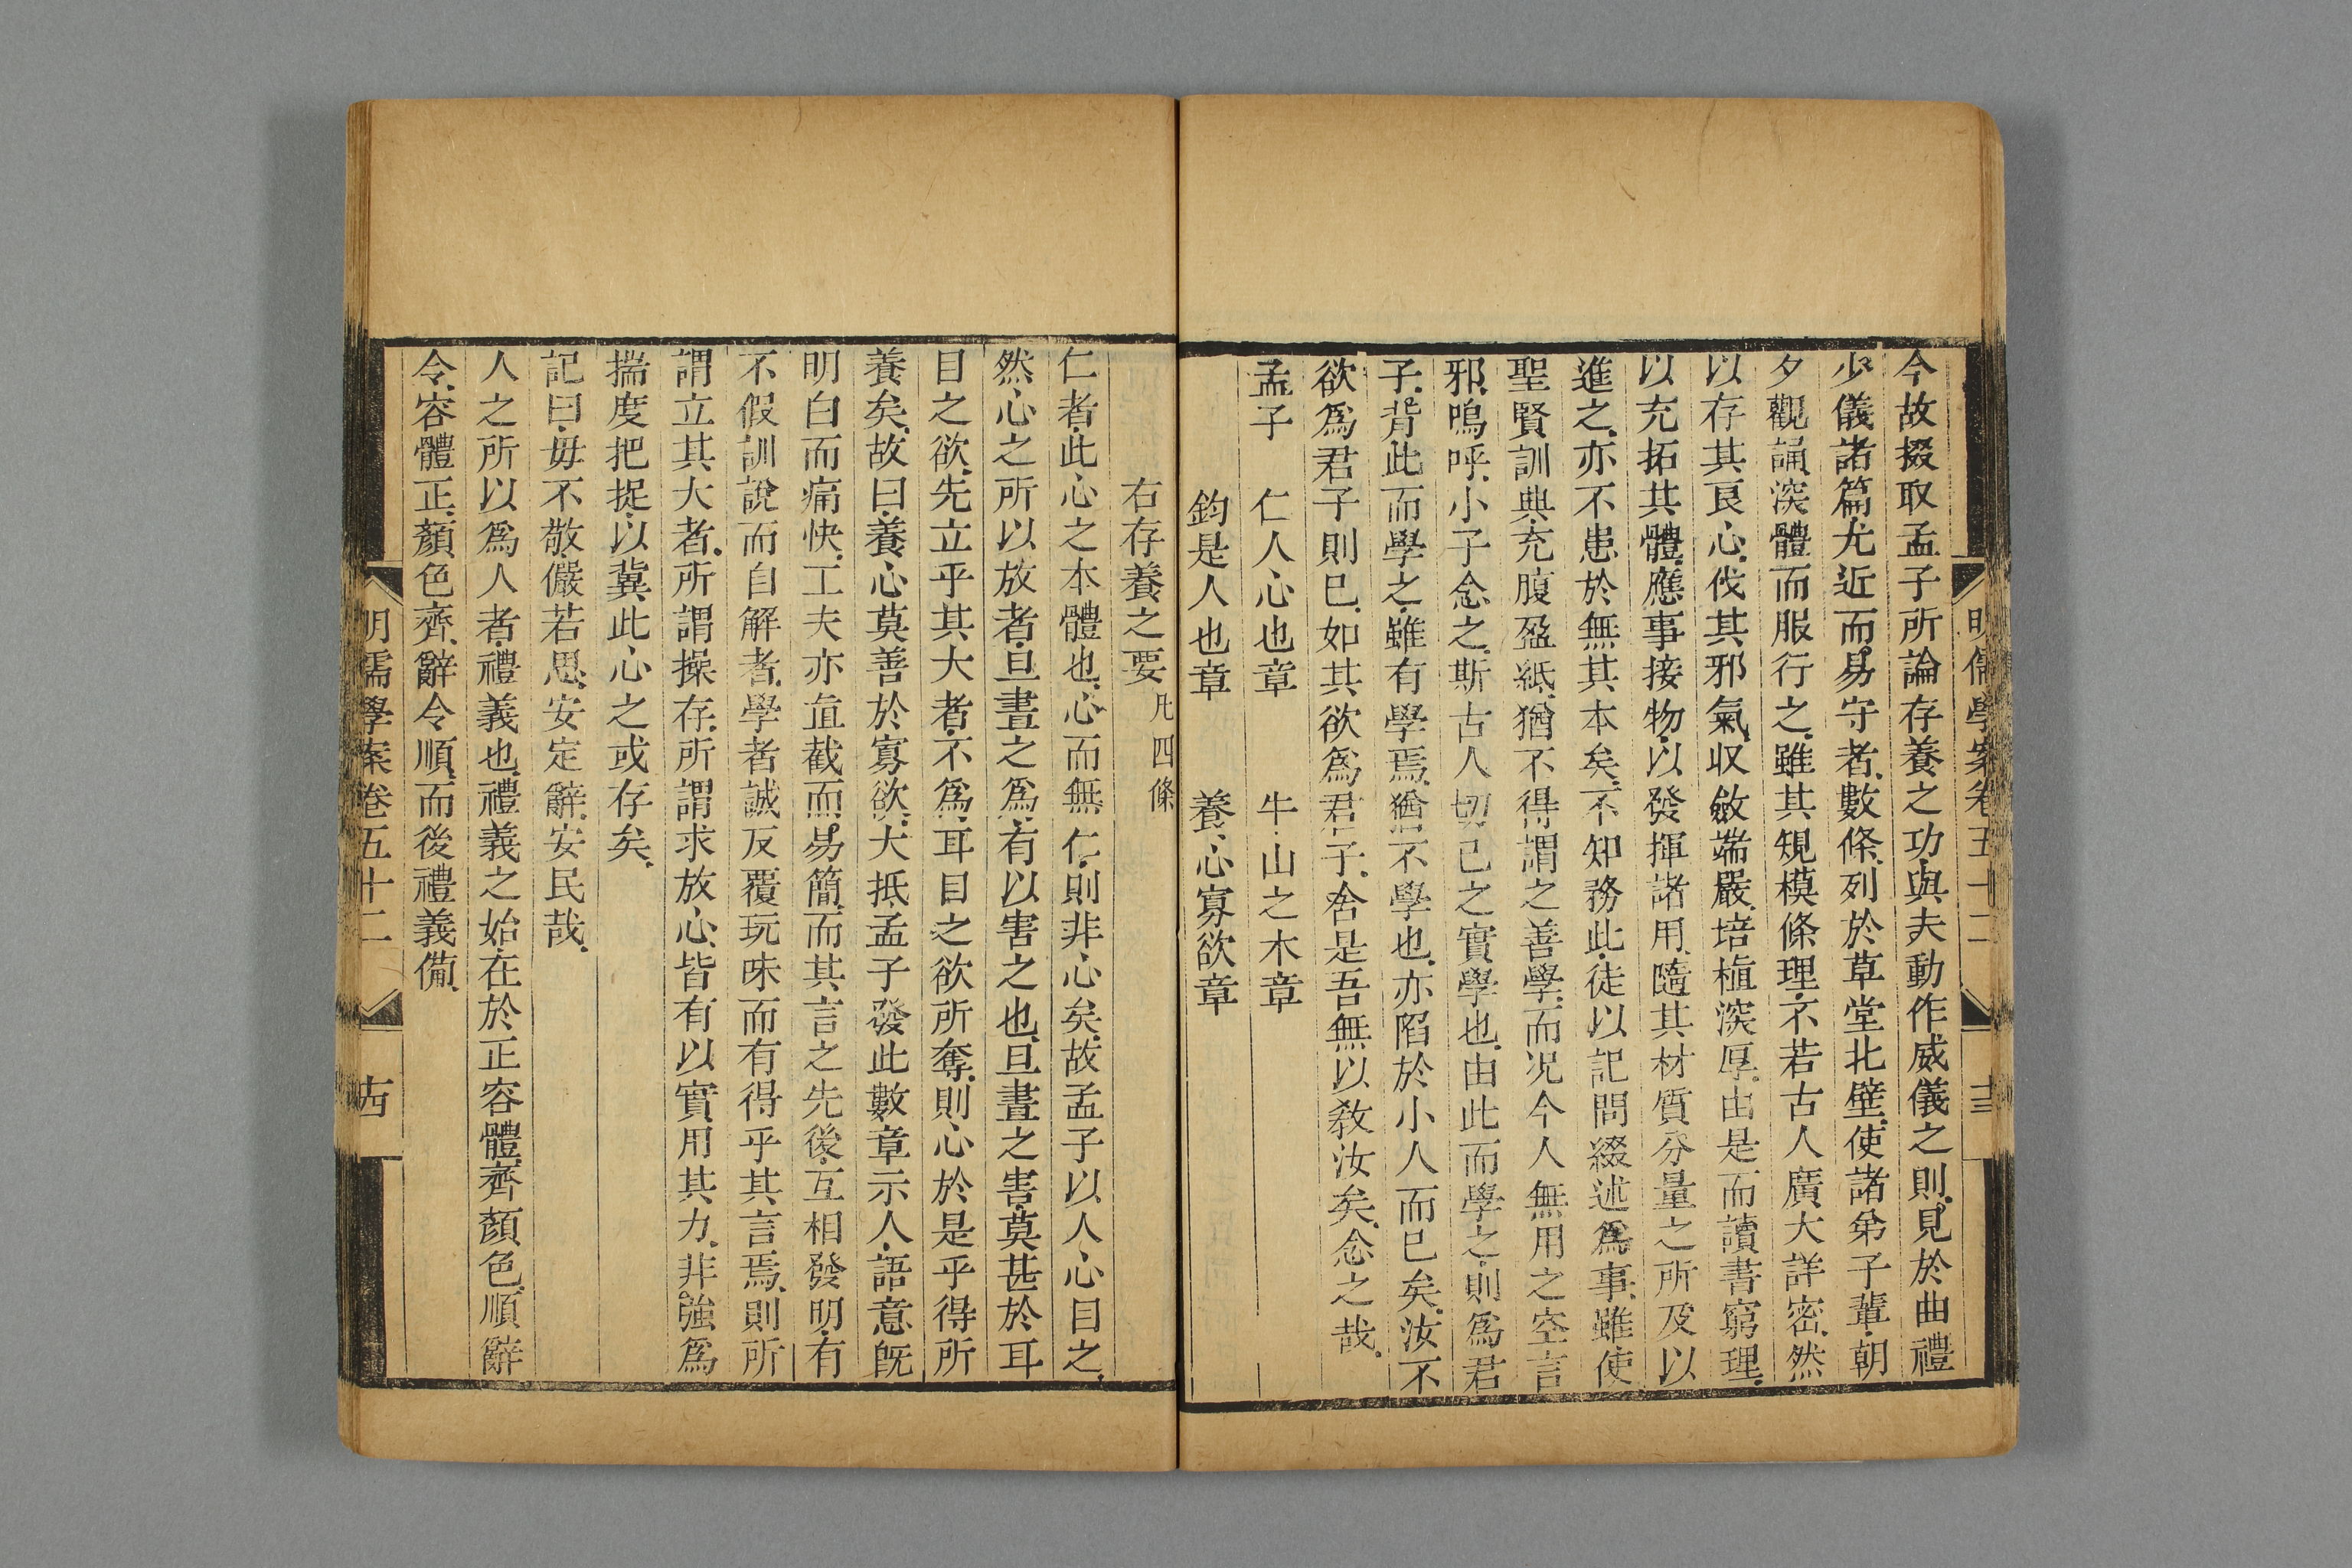 明儒學案卷五十二
十三
今故掇取孟子所論存養之功與夫動作威儀之則見於曲禮
少儀諸篇尤近而易守者數條列於草堂北壁使諸弟子輩朝
夕觀誦深體而服行之雖其規模條理不若古人廣大詳密然
以存其良心伐其邪氣収斂端嚴培植深厚由是而讀書窮理
以充拓其體應事接物以發揮諸用隨其材質分量之所及以
進之亦不患於無其本矣不知務此徒以記問綴述爲事雖使
聖賢訓典充腹盈紙猶不得謂之善學而况今人無用之空言
邪嗚呼小子念之斯古人切己之實學也由此而學之則爲君
子背此而學之雖有學焉猶不學也亦陷於小人而已矣汝不
欲爲君子則已如其欲爲君子舍是吾無以敎汝矣念之哉
孟子　仁人心也章　　牛山之木章
鈞是人也章　　養心寡欲章
右存養之要凡四條
仁者此心之本體也心而無仁則非心矣故孟子以人心目之
然心之所以放者旦晝之爲有以害之也旦晝之害莫甚於耳
目之欲先立乎其大者不爲耳目之欲所奪則心於是乎得所
養矣故曰養心莫善於寡欲大抵孟子發此數章示人語意旣
明白而痛快工夫亦直截而易簡而其言之先後互相發明有
不假訓說而自解者學者誠反覆玩味而有得乎其言焉則所
謂立其大者所謂操存所謂求放心皆有以實用其力非強爲
揣度把捉以冀此心之或存矣
記曰毋不敬儼若思安定辭安民哉
人之所以爲人者禮義也禮義之始在於正容體齊顏色順辭
令容體正顏色齊辭令順而後禮義備
明儒學案卷五十二
古